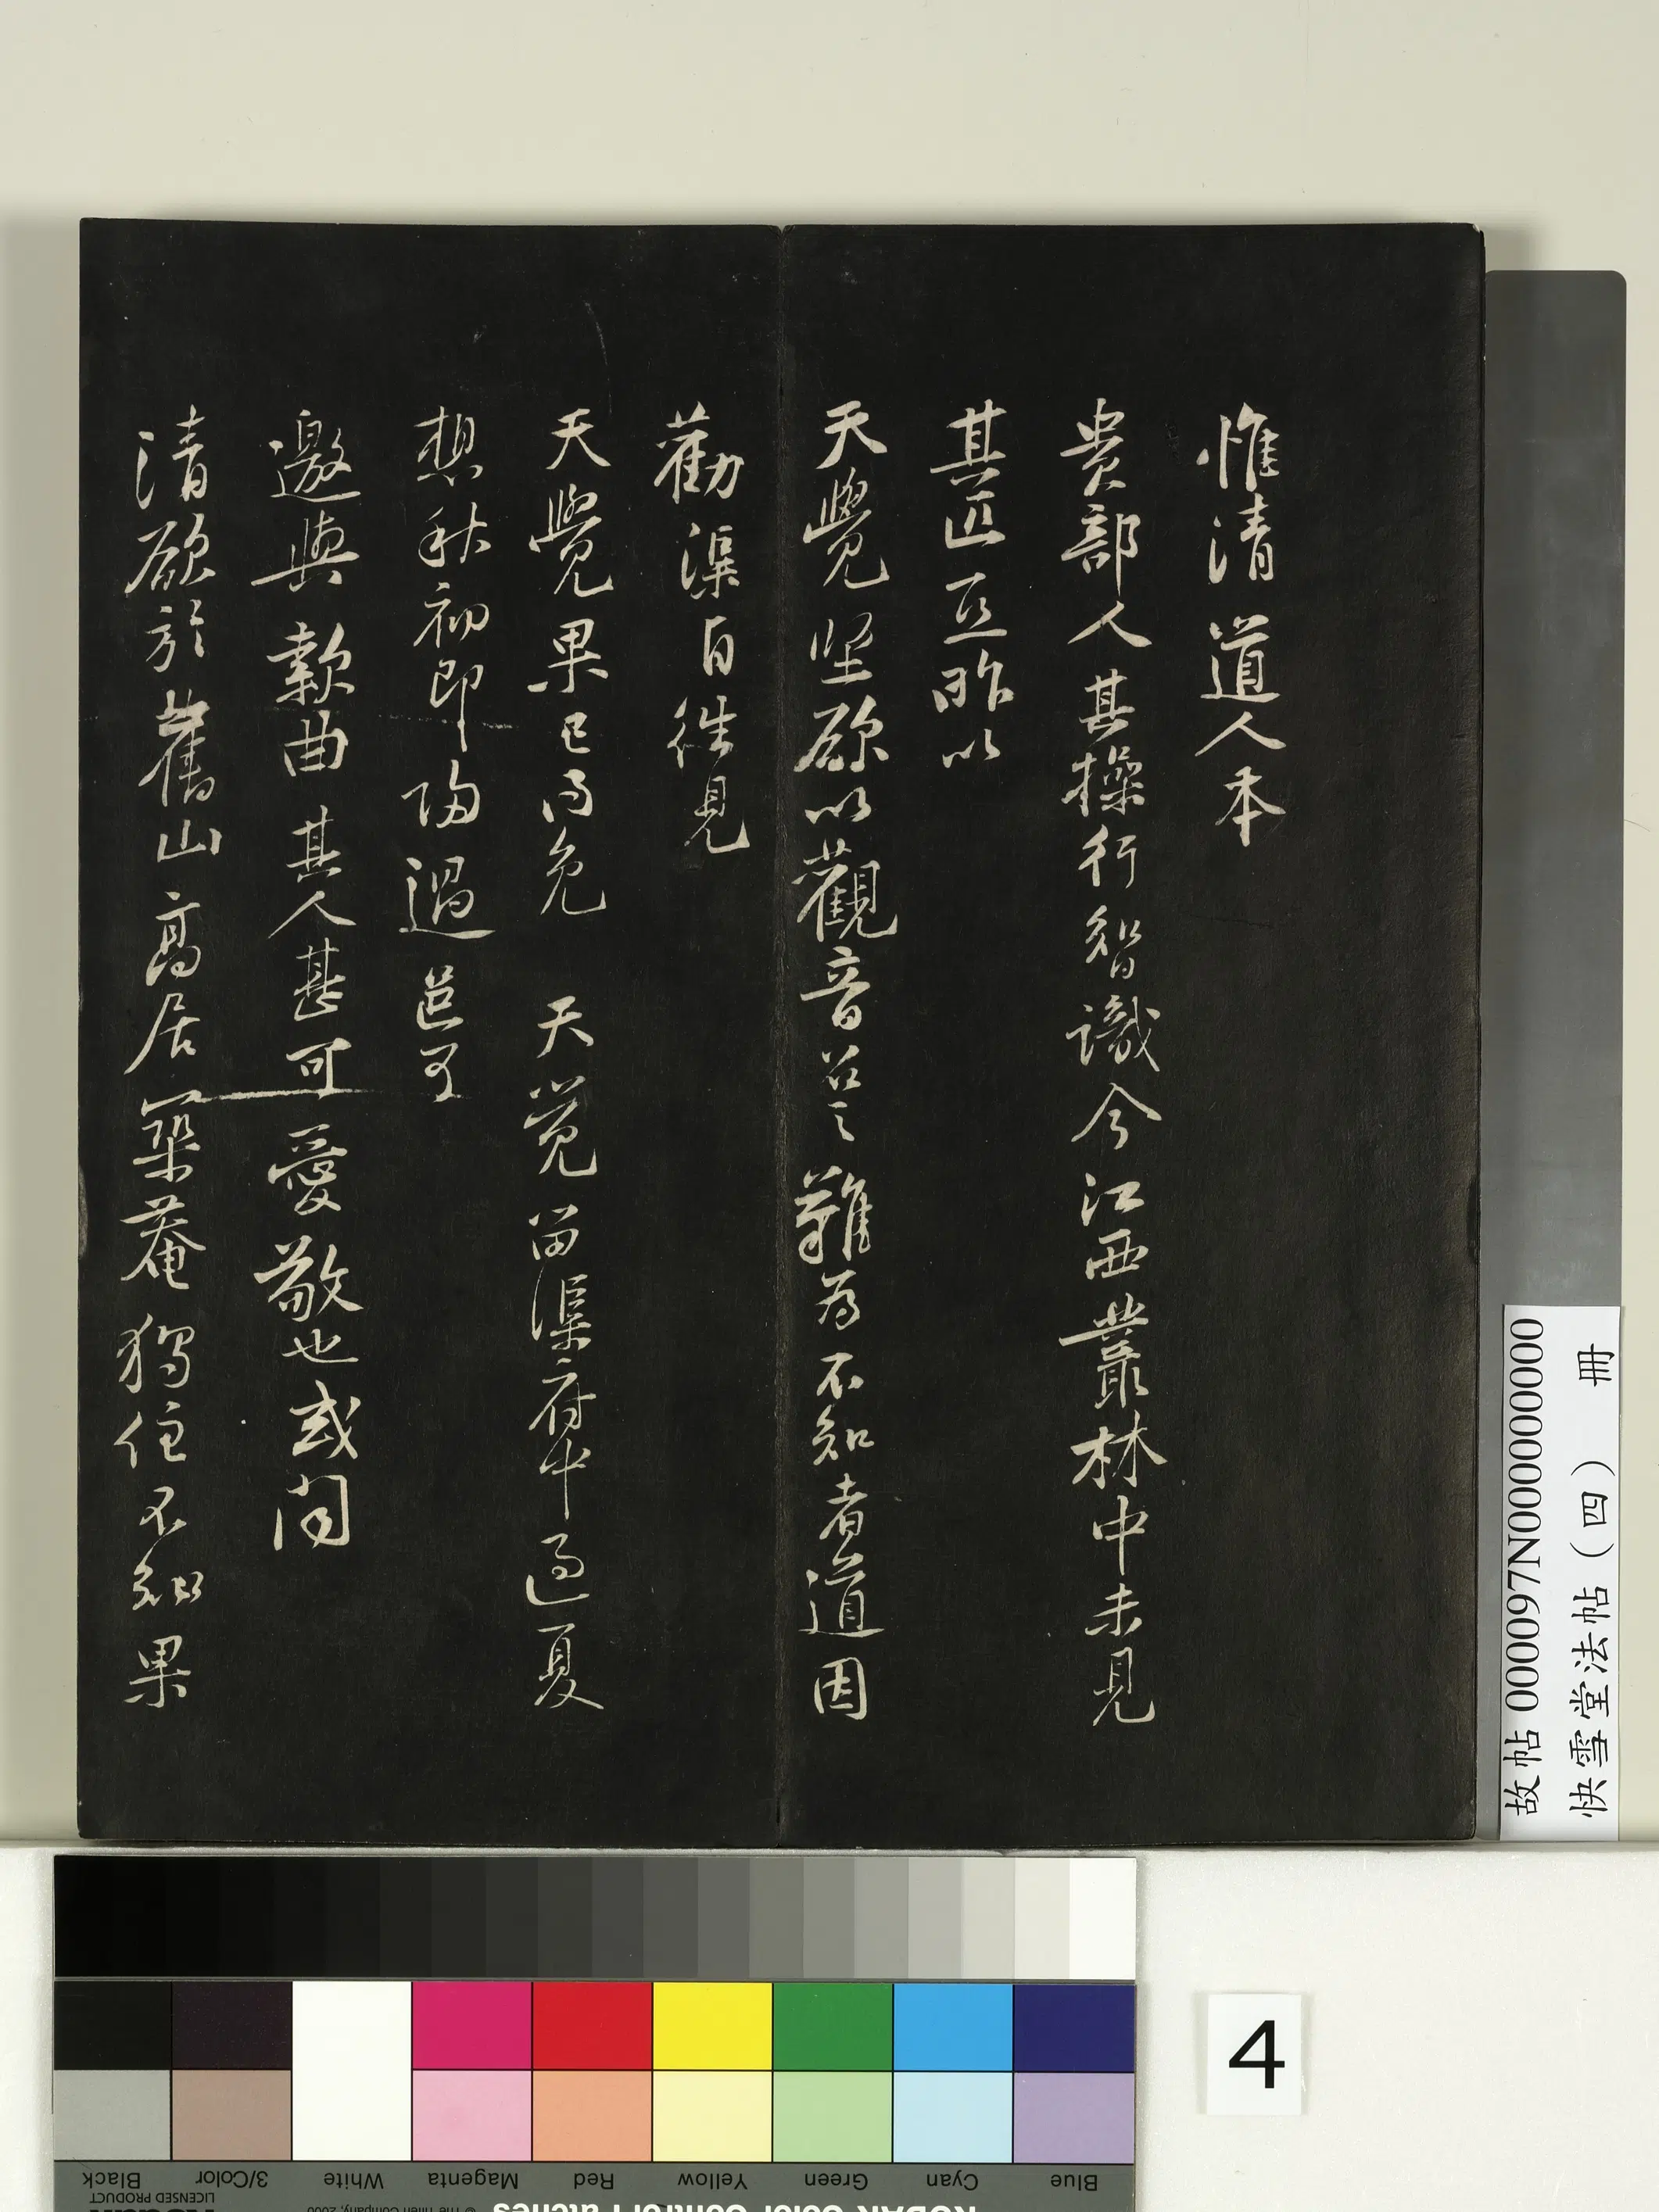 惟清道人本
貴部人其操行智識今江西叢林中未見
其匹亟昨以
天覺堅欲以觀音召之難為不知者道因
勸渠自往見
天覺果已得免 天覺留渠府中過夏
想秋初即歸過邑可
邀與款曲其人甚可愛敬也或聞
清欲於舊山高居築菴獨住不知果
故帖 000097N000000000
快雪堂法帖（四） 冊
4
Blue Cyan Green Yellow Red Magenta White 3/Color Black
KODAK Color Control Patches
© The Tiffen Company, 2000
LICENSED PRODUCT